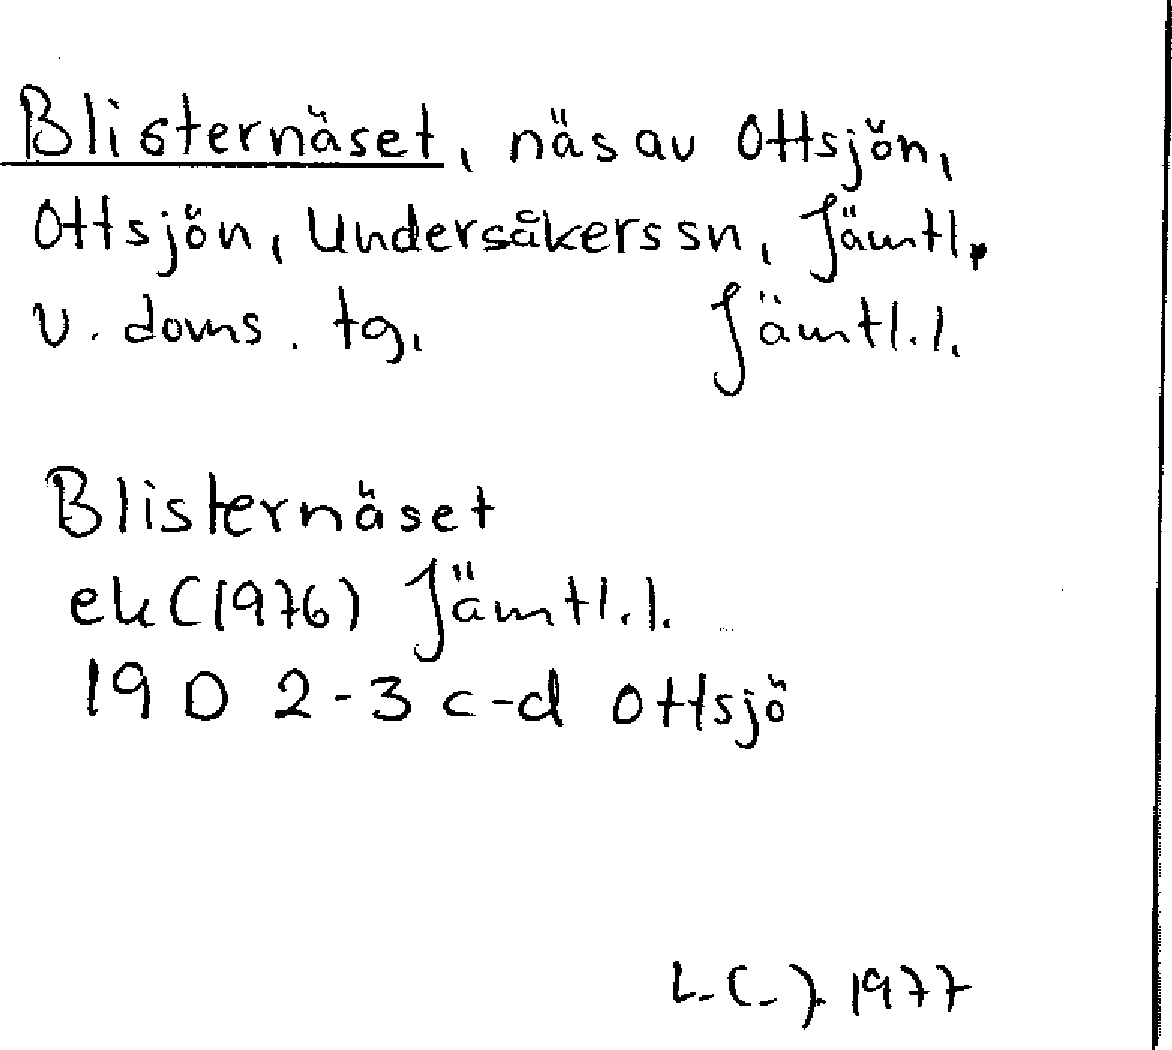 Blisternäset, näs av Ottsjön,
Ottsjön, Undersåkers sn, Jämtl.
v. doms. tg. Jämtl.l.
Blisternäset
ek (1976) Jämtl.l.
19 D 2-3 c-d Ottsjö
L-C-J. 1977